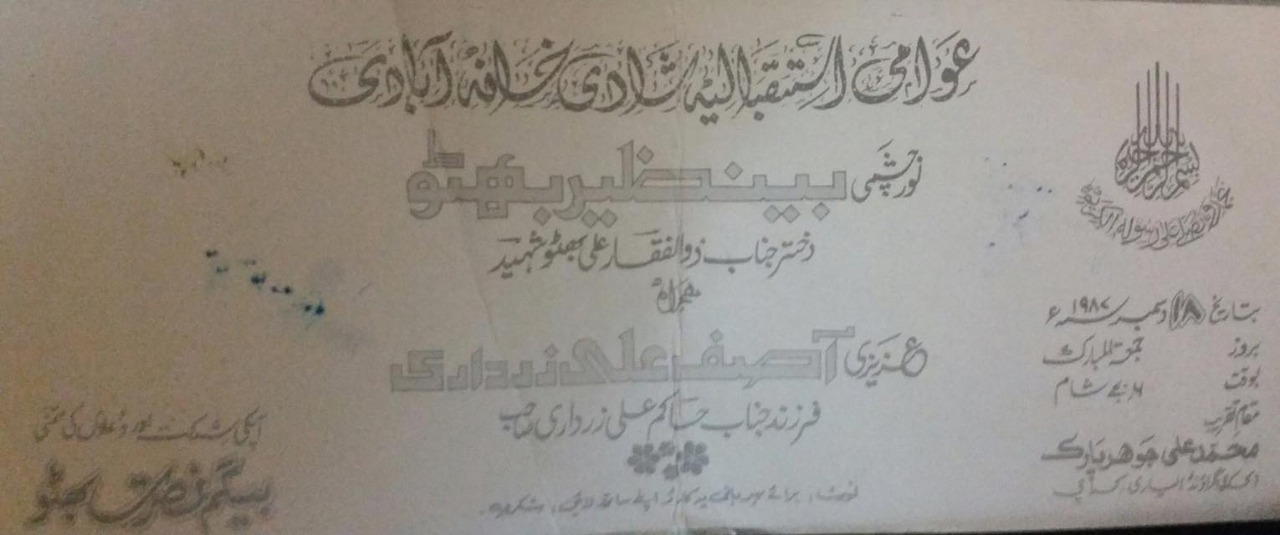 بسم اللہ الرحمن الرحیم
نحمدہ ونصلی علی رسولہ الکریم
عوامی استقبالیہ شادی خانہ آبادی
نور چشمی بینظیر بھٹو
دختر جناب ذوالفقار علی بھٹو شہید
ہمراہ
عزیزی آصف علی زرداری
فرزند جناب حاکم علی زرداری صاحب
نوٹ: برائے مہربانی یہ کارڈ اپنے ساتھ لائیں، شکریہ۔
بتاریخ ۱۸ دسمبر سنہ ۱۹۸۷ء
بروز جمعۃ المبارک
بوقت ۴ بجے شام
مقام تقریب
محمد علی جوھر پارک
لیاری کراچی
آپکی شرکت اور دعاؤں کی متمنی
بیگم نصرت بھٹو